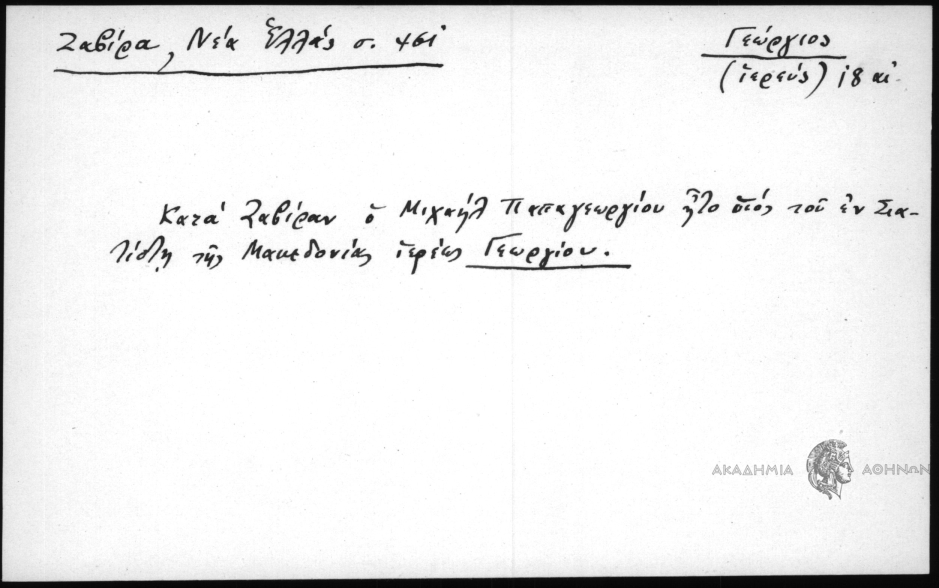 Ζαβίρα, Νέα Ἑλλάς σ. 461
Γεώργιος
(ἱερεύς) 18 αἰ.
Κατά Ζαβίραν ὁ Μιχαήλ Παπαγεωργίου ἦτο υἱός τοῦ ἐν Σια-
τίστῃ τῆς Μακεδονίας ἱερέως Γεωργίου.
ΑΚΑΔΗΜΙΑ ΑΘΗΝΩΝ